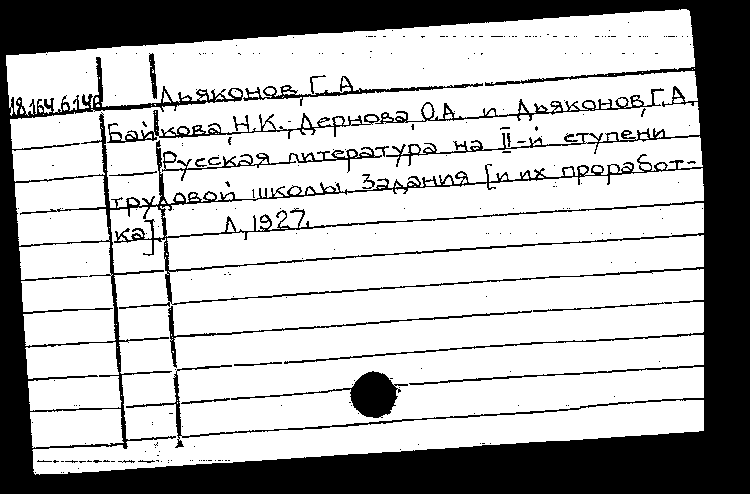 Дьяконов, Г. А.
18.164.6.146
Байкова, Н.К., Дернова, О.А. и Дьяконов, Г.А.
Русская литература на II-й ступени
трудовой школы. Задания [и их проработ-
ка]. Л., 1927.